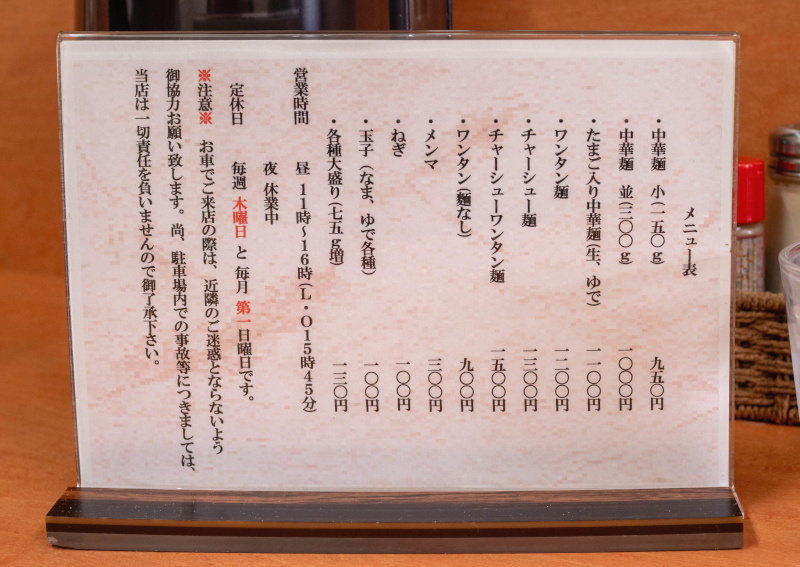 メニュー表
・中華麺 小(一五〇g) 九五〇円
・中華麺 並(三〇〇g) 一〇〇〇円
・たまご入り中華麺(生、ゆで) 一一〇〇円
・ワンタン麺 一二〇〇円
・チャーシュー麺 一三〇〇円
・チャーシューワンタン麺 一五〇〇円
・ワンタン(麺なし) 九〇〇円
・メンマ 三〇〇円
・ねぎ 一〇〇円
・玉子(なま、ゆで各種) 一〇〇円
・各種大盛り(七五g増) 一三〇円
営業時間 昼 11時~16時(L・O15時45分)
夜 休業中
定休日 毎週 木曜日 と 毎月 第一日曜日です。
※注意※ お車でご来店の際は、近隣のご迷惑とならないよう
御協力お願い致します。尚、駐車場内での事故等につきましては、
当店は一切責任を負いませんので御了承下さい。